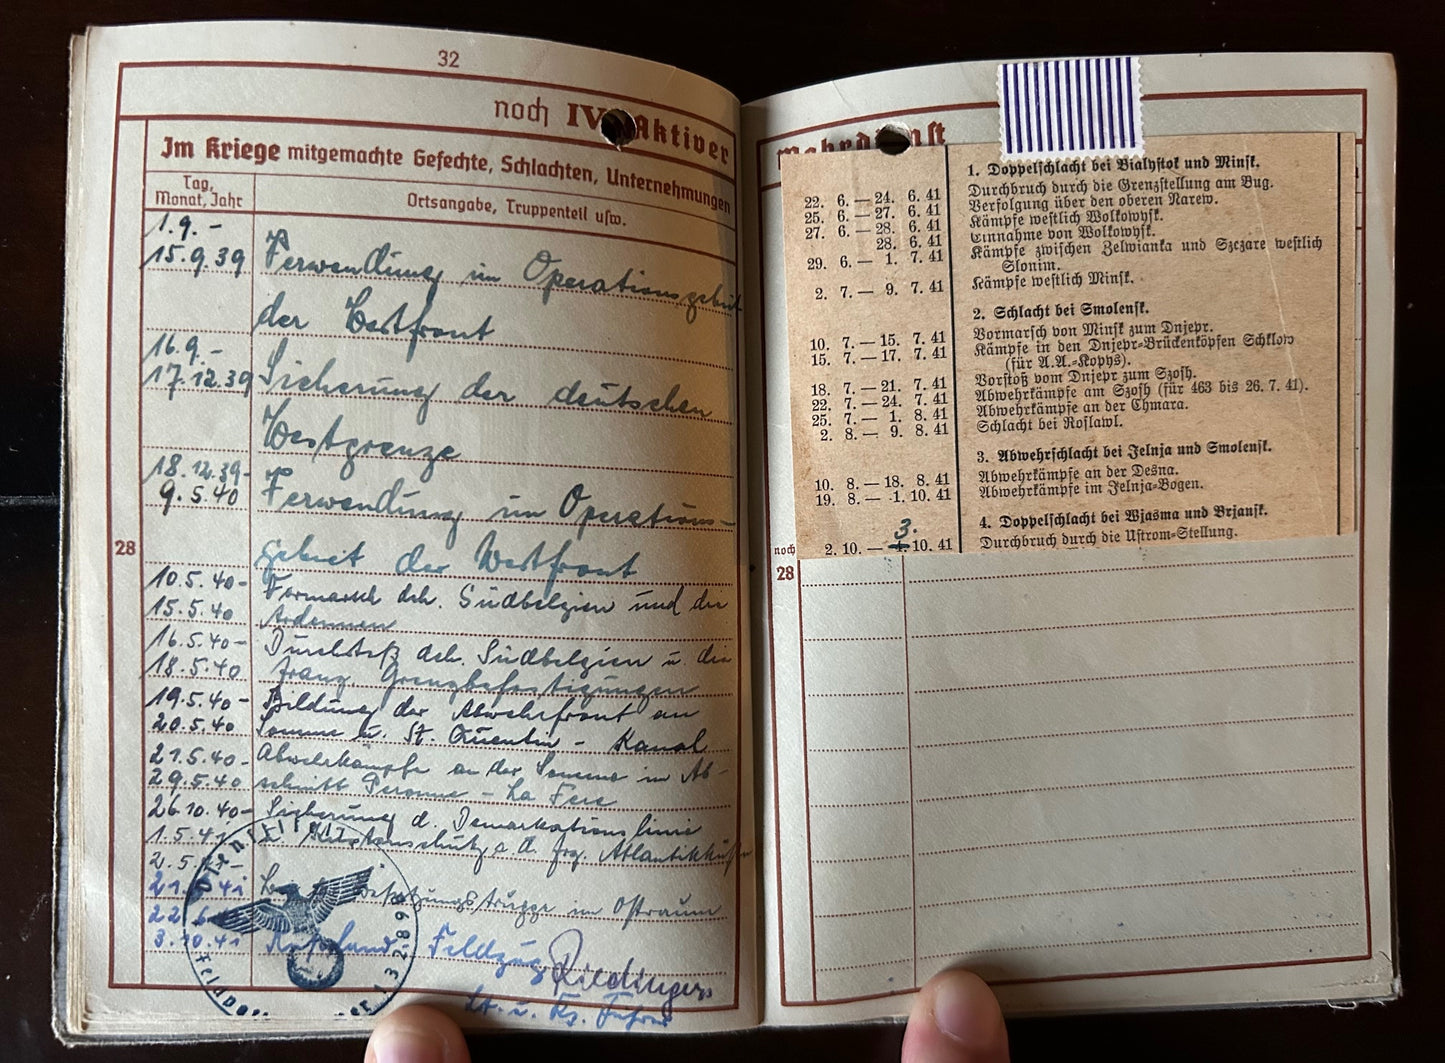 32
noch IV. Aktiver
Im Kriege mitgemachte Gefechte, Schlachten, Unternehmungen
Tag, Monat, Jahr
Ortsangabe, Truppenteil usw.
1.9.-
15.9.39 Verwendung im Operationsgebiet
der Westfront
16.9.-
17.12.39 Sicherung der deutschen
Westgrenze
18.12.39-
9.5.40 Verwendung im Operations-
28
gebiet der Westfront
10.5.40- Vormarsch dch. Südbelgien und die
15.5.40 Ardennen
16.5.40- Durchstoß dch. Südbelgien u. die
18.5.40 franz. Grenzbefestigungen
19.5.40- Bildung der Abwehrfront an
20.5.40 Somme u. St. Quentin - Kanal
21.5.40- Abwehrkämpfe an der Somme im Ab-
29.5.40 schnitt Peronne - La Fere
26.10.40- Sicherung d. Demarkationslinie
1.5.41 Küstenschutz a. d. frz. Atlantikküste
2.5.41-
21. 41 Besatzungstruppe im Ostraum
22.6.
3.10.41 Rußland Feldzug
Riedinger
Lt. u. Kp. Führer
Dienststelle
Feldpost
Wehrdienst
1. Doppelschlacht bei Bialystok und Minsk.
22. 6. — 24. 6. 41 Durchbruch durch die Grenzstellung am Bug.
25. 6. — 27. 6. 41 Verfolgung über den oberen Narew.
27. 6. — 28. 6. 41 Kämpfe westlich Wolkowysk.
28. 6. 41 Einnahme von Wolkowysk.
29. 6. — 1. 7. 41 Kämpfe zwischen Zelwianka und Szczare westlich
Slonim.
2. 7. — 9. 7. 41 Kämpfe westlich Minsk.
2. Schlacht bei Smolensk.
10. 7. — 15. 7. 41 Vormarsch von Minsk zum Dnjepr.
15. 7. — 17. 7. 41 Kämpfe in den Dnjepr-Brückenköpfen Schklow
(für A.A.-Kopys).
18. 7. — 21. 7. 41 Vorstoß vom Dnjepr zum Szosh.
22. 7. — 24. 7. 41 Abwehrkämpfe am Szosh (für 463 bis 26. 7. 41).
25. 7. — 1. 8. 41 Abwehrkämpfe an der Chmara.
2. 8. — 9. 8. 41 Schlacht bei Roslawl.
3. Abwehrschlacht bei Jelnja und Smolensk.
10. 8. — 18. 8. 41 Abwehrkämpfe an der Desna.
19. 8. — 1. 10. 41 Abwehrkämpfe im Jelnja-Bogen.
4. Doppelschlacht bei Wjasma und Brjansk.
3.
2. 10. — 4. 10. 41 Durchbruch durch die Ustrom-Stellung.
noch
28